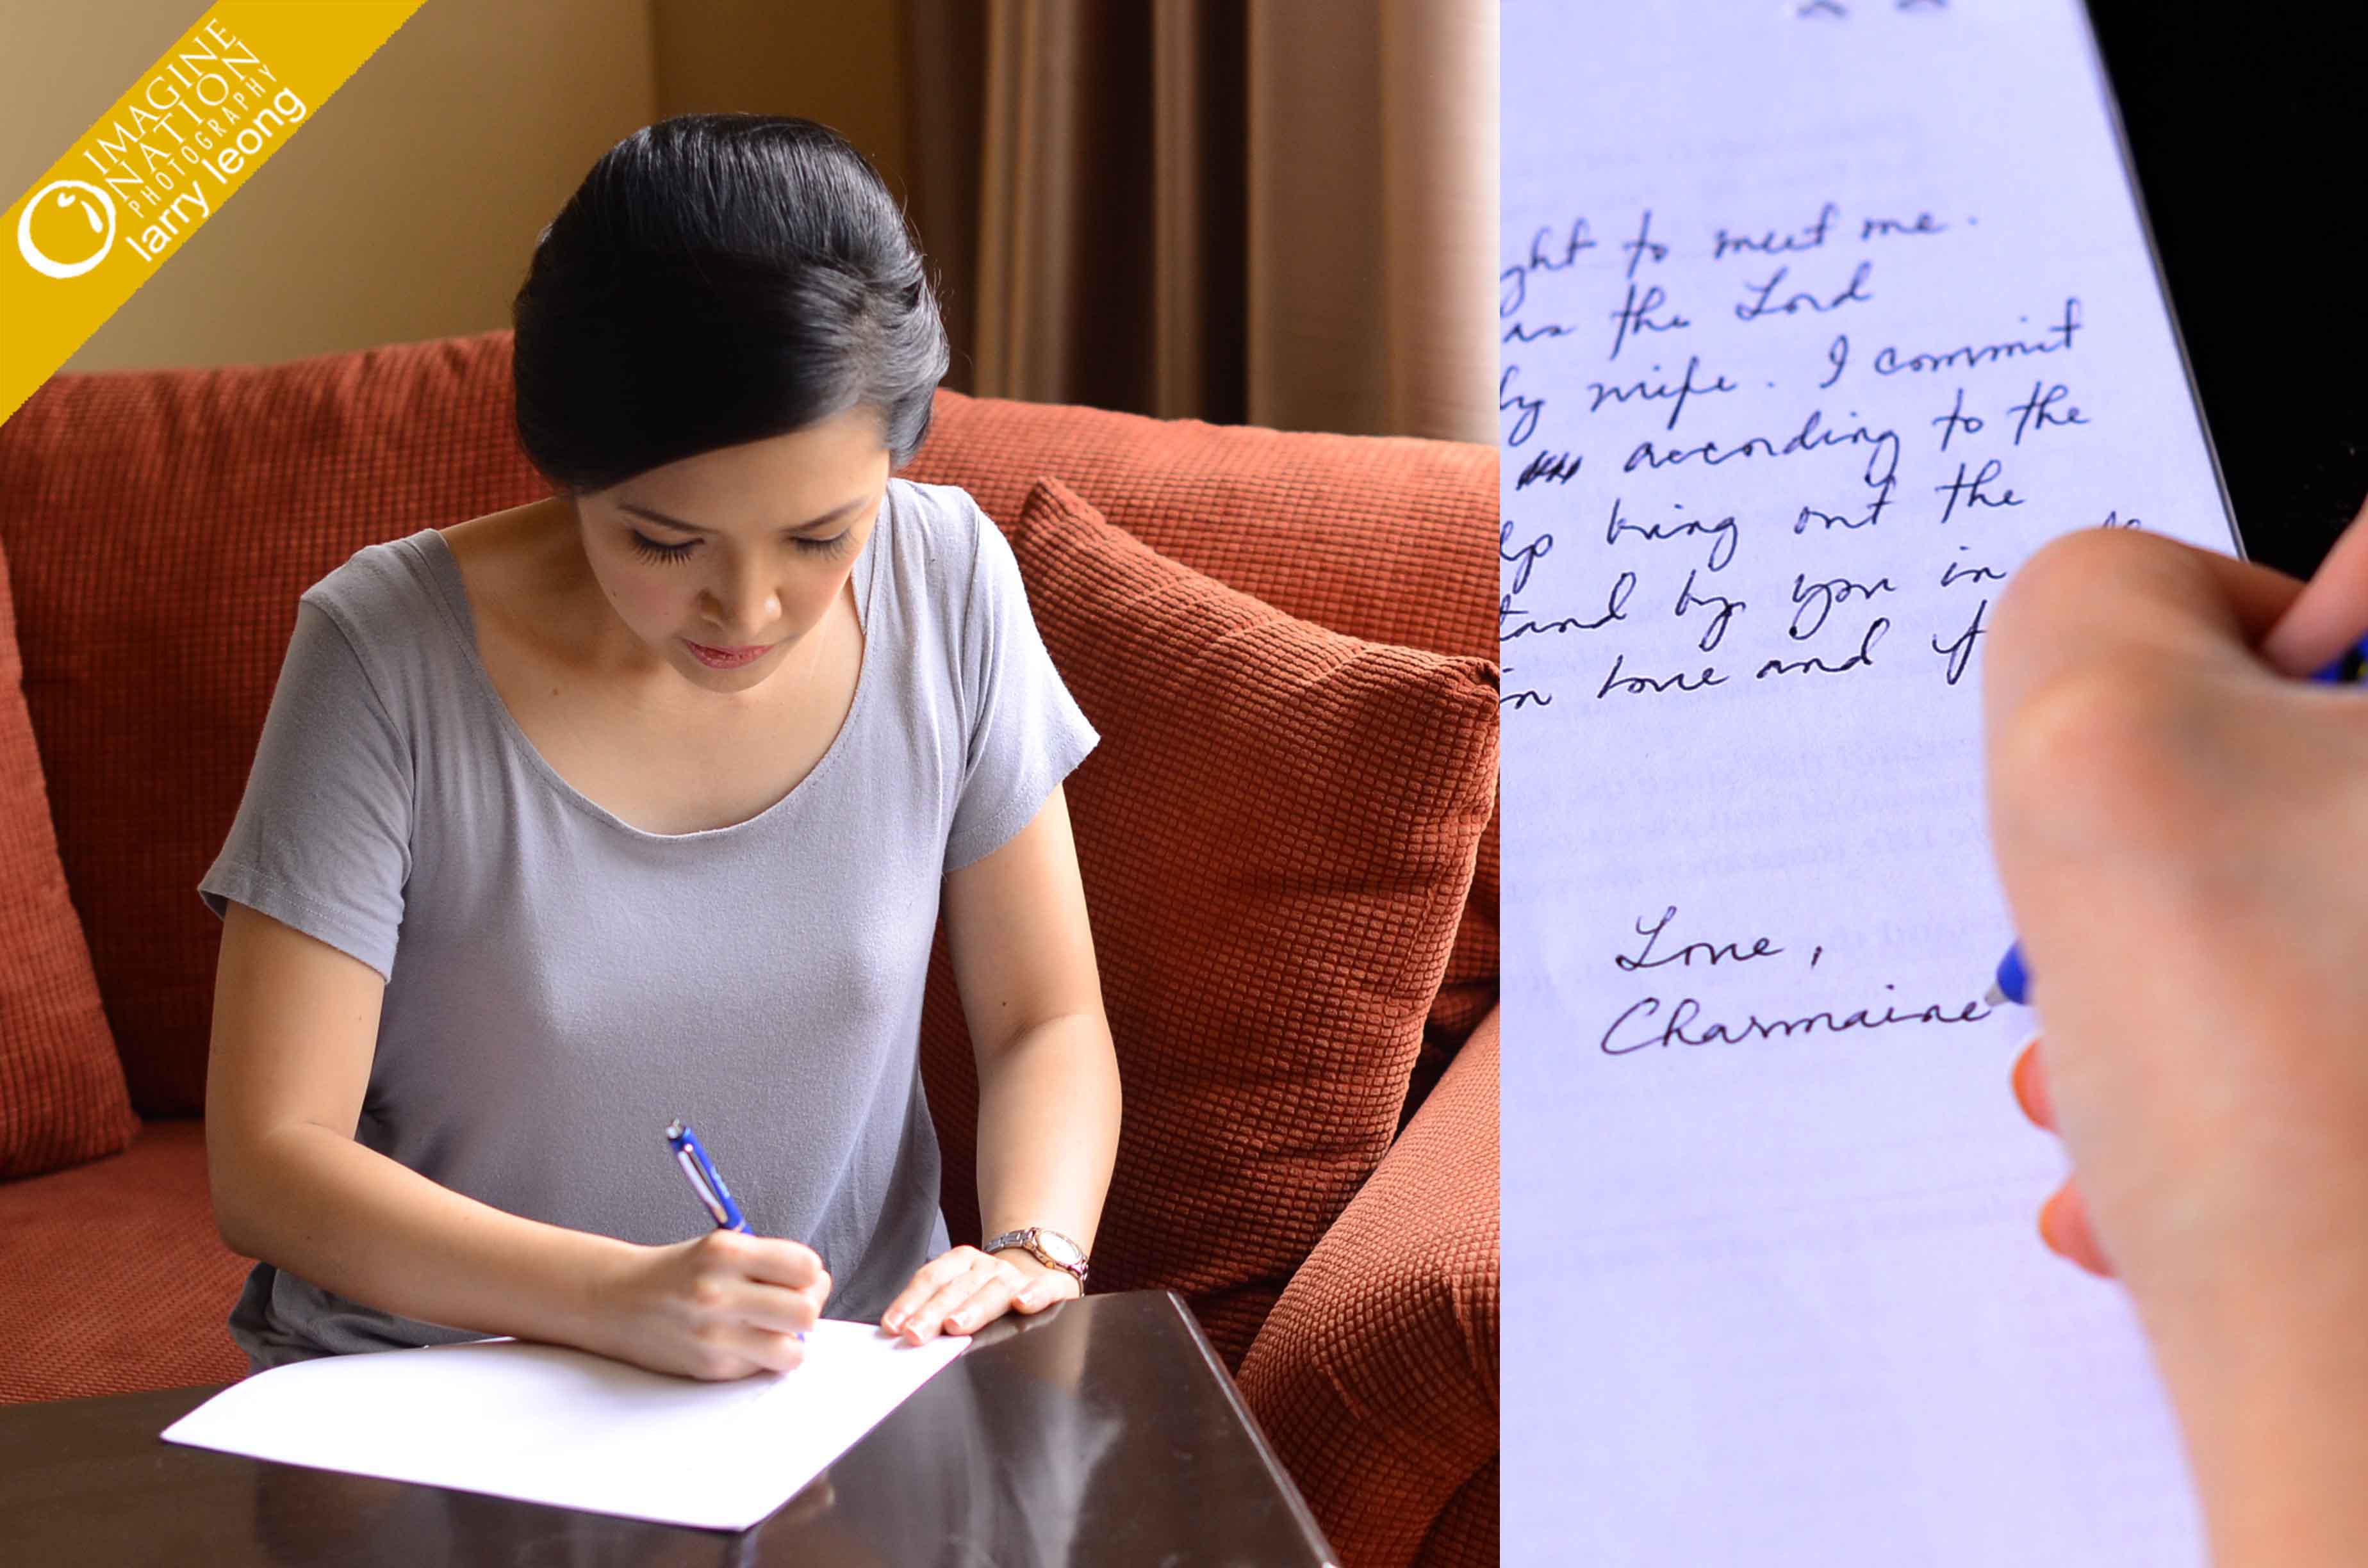 IMAGINE
NATION
PHOTOGRAPHY
larry leong
ght to meet me.
as the Lord
by wife. I commit
according to the
lp bring out the
tand by you in
in love and if
Love,
Charmaine